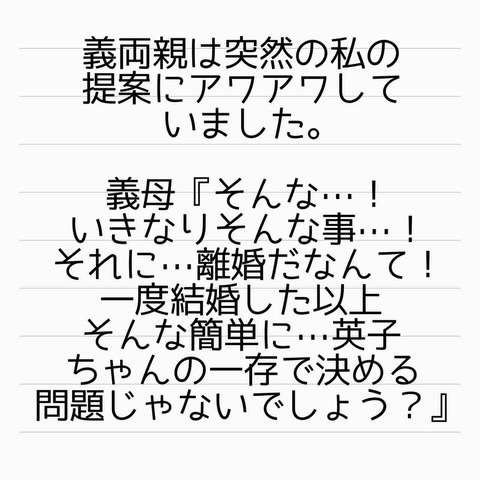 義両親は突然の私の
提案にアワアワして
いました。
義母『そんな…！
いきなりそんな事…！
それに…離婚だなんて！
一度結婚した以上
そんな簡単に…英子
ちゃんの一存で決める
問題じゃないでしょう？』